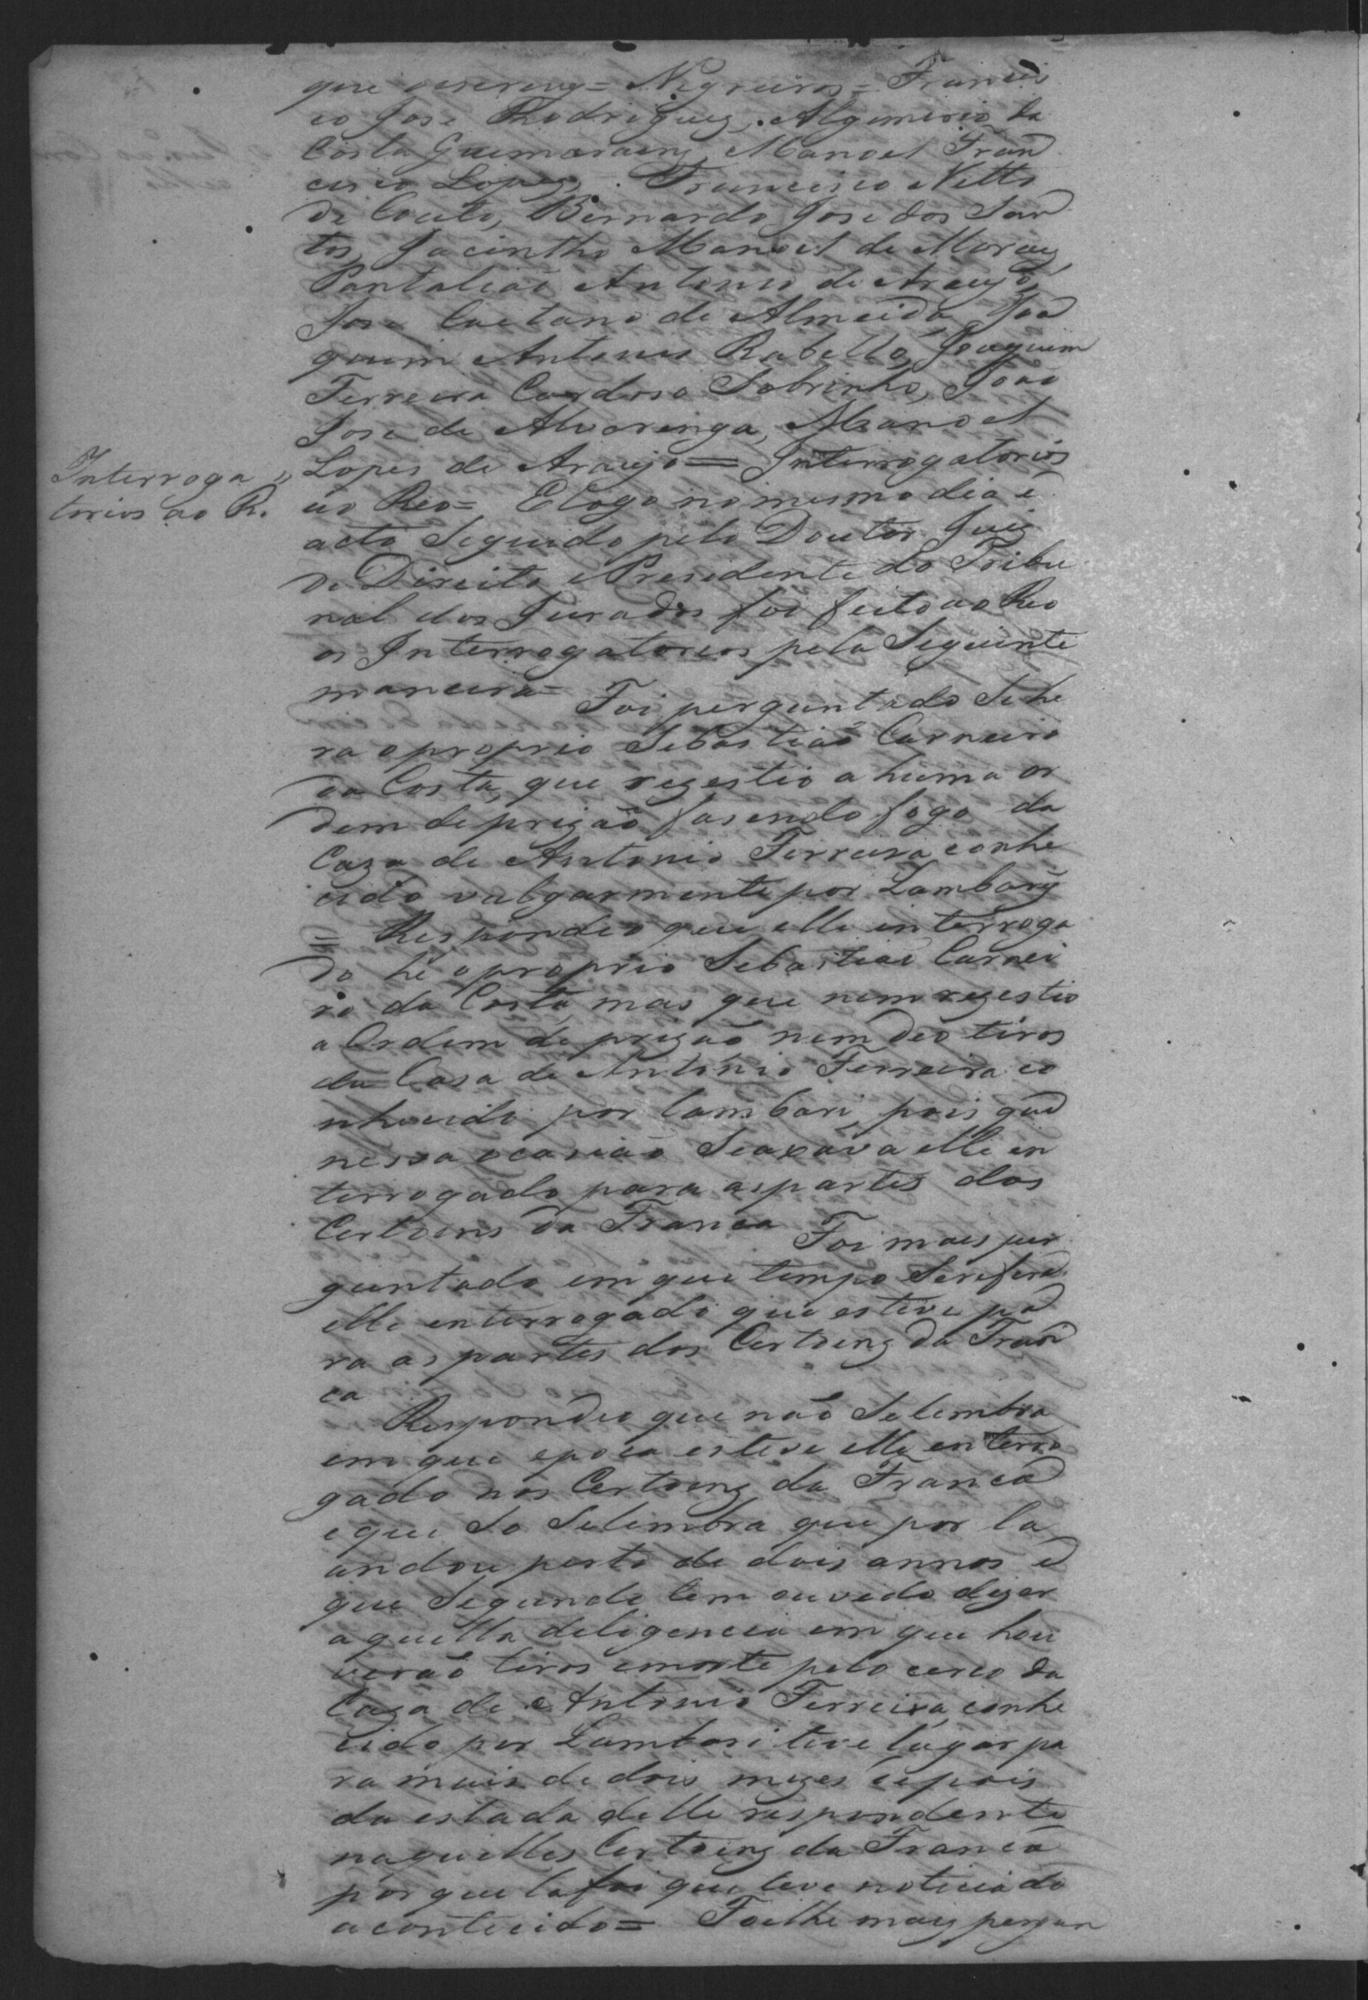 que escrevy = Negreiros = Francis
co Jose Rodriguez, Algemirio da
Costa Guimaraens, Manoel Fran
cisco Lopes. Francisco Netto
do Couto, Bernardo Jose dos San
tos, Jacintho Manoel de Moraes
Pantaliaõ Antonio de Araujo,
Jose Caetano de Almeida Joa
quim Antonio Rabello, Joaquim
Ferreira Cardoso Sobrinho, João
Jose de Alvarenga, Manoel
Lopes de Araujo = Interrogatorios
Interroga
torios ao R.
ao Reo = E logo no mesmo dia e
acto Seguido pelo Doutor Juiz
de Direito e Presidente do Tribu
nal dos Jurados foi feito ao Reo
os Interrogatorios pela Seguinte
maneira = Foi perguntado Se he
ra o proprio Sebastiaõ Carneiro
da Costa, que rezestio a huma or
dem de prizaõ fasendo fogo da
Caza de Antonio Ferreira conhe
cido vulgarmente por Lambary
= Respondeo que elle interroga
do hé o proprio Sebastiaõ Carnei
ro da Costa, mas que nem rezestio
a Ordem de prizaõ nem deo tiros
da Casa de Antonio Ferreira co
nhecido por Lambari, pois que
nessa ocasiaõ Seaxava elle in
terrogado para as partes dos
Certoens da Franca Foi mais per
guntado em que tempo Serefere
elle enterrogado que esteve pa
ra as partes dos Certoens da Fran
ca
Respondeo que não Selembra
em que epoca esteve elle enterro
gado nos Certoens da Franca
e que So Selembra que por la
andou perto de dois annos e
que Segundo tem ouvido dizer
aquella deligencia em que hou
verão tiros e morte pelo cerco da
Caza de Antonio Ferreira, conhe
cido por Lambari teve lugar pa
ra mais de dois mezes depois
da estada delle respondente
naquelles Certoens da Franca
porque la foi que teve noticia do
acontecido = Foi lhe mais pergun